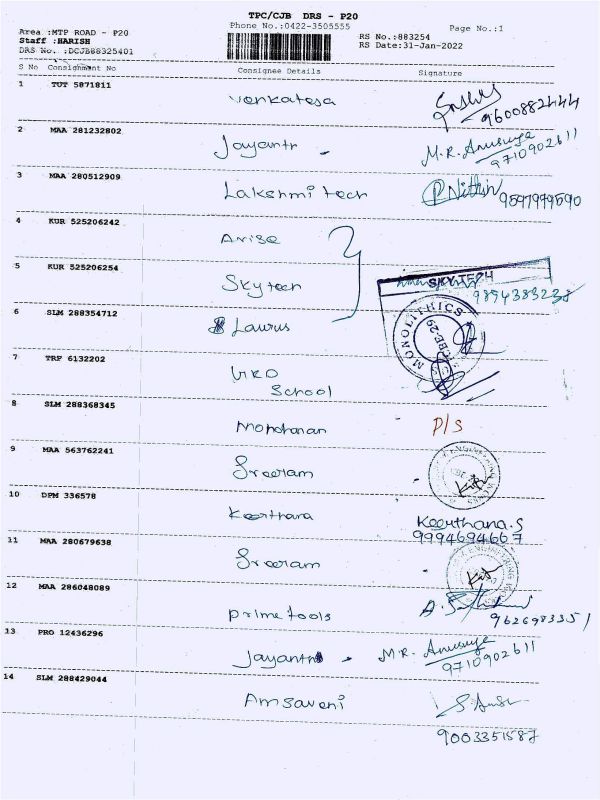 TPC/CJB DRS - P20
Area :MTP ROAD - P20 Phone No.:0422-3505555 Page No.:1
Staff :HARISH RS No.:883254
DRS No. :DCJB88325401 RS Date:31-Jan-2022
S No Consignment No Consignee Details Signature
1 TUT 5871811 Venkatesa 9600882444
2 MAA 281232802 Jayanthi M.R. Anusuya
9710902611
3 MAA 280512909 Lakshmi tech Nithin 9597999590
4 KUR 525206242 Arise
5 KUR 525206254 Skytech SKYTECH
9894383238
6 SLM 288354712 Laurus MONOLITHICS
7 TRF 6132202 URO
School
8 SLM 288368345 Mohanan P/S
9 MAA 563762241 Sreeram
10 DPM 336578 Keerthana Keerthana.S
9994694667
11 MAA 280679638 Sreeram
12 MAA 286048089 Prime tools
9626983351
13 PRO 12436296 Jayanthi M.R. Anusuya
9710902611
14 SLM 288429044 Amsaveni
9003351587